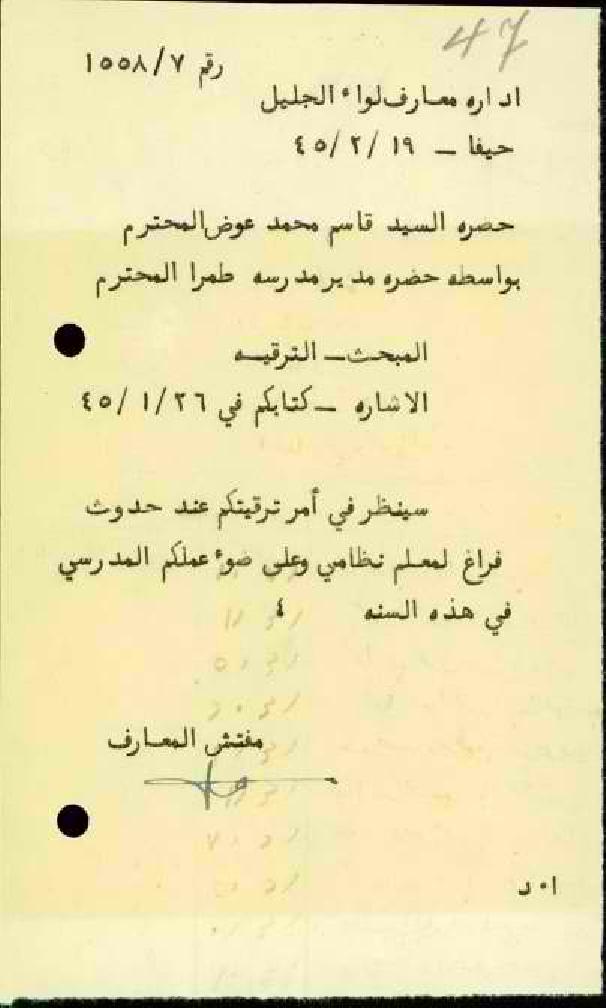 47
رقم ١٥٥٨/٧
اداره معارف لواء الجليل
حيفا – ٤٥/٢/١٩
حضره السيد قاسم محمد عوض المحترم
بواسطه حضره مدير مدرسه طمرا المحترم
المبحث – الترقيه
الاشاره – كتابكم في ٤٥/١/٢٦
سينظر في أمر ترقيتكم عند حدوث
فراغ لمعلم نظامي وعلى ضوء عملكم المدرسي
في هذه السنه ٤
مفتش المعارف
ا٠ د